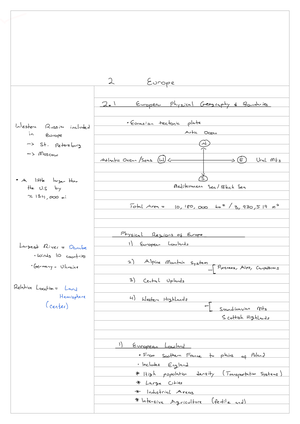 2 Europe
2.1 European Physical Geography & Boundaries
Western Russia included
in Europe
→ St. Petersburg
→ Moscow
• Eurasian tectonic plate
Artic Ocean
N
Atlantic Ocean
W
E
Ural Mts
S
Mediterranean Sea / Black Sea
• A little larger than
the US by
Total Area = 10,180,000 km² / 3,930,519 m²
Physical Regions of Europe
1) European Lowlands
Largest River = Danube
- Winds 10 countries
- Germany - Ukraine
2) Alpine Mountain System
Pyrenees, Alps, Carpathians
3) Central Uplands
Relative Location = Land
Hemisphere
(center)
4) Western Highlands
Scandinavian Mts
Scottish Highlands
1) European Lowland
• From Southern France to plains of Poland
• Includes England
* High population density (Transportation Systems)
* Large Cities
* Industrial Areas
* Intensive Agriculture